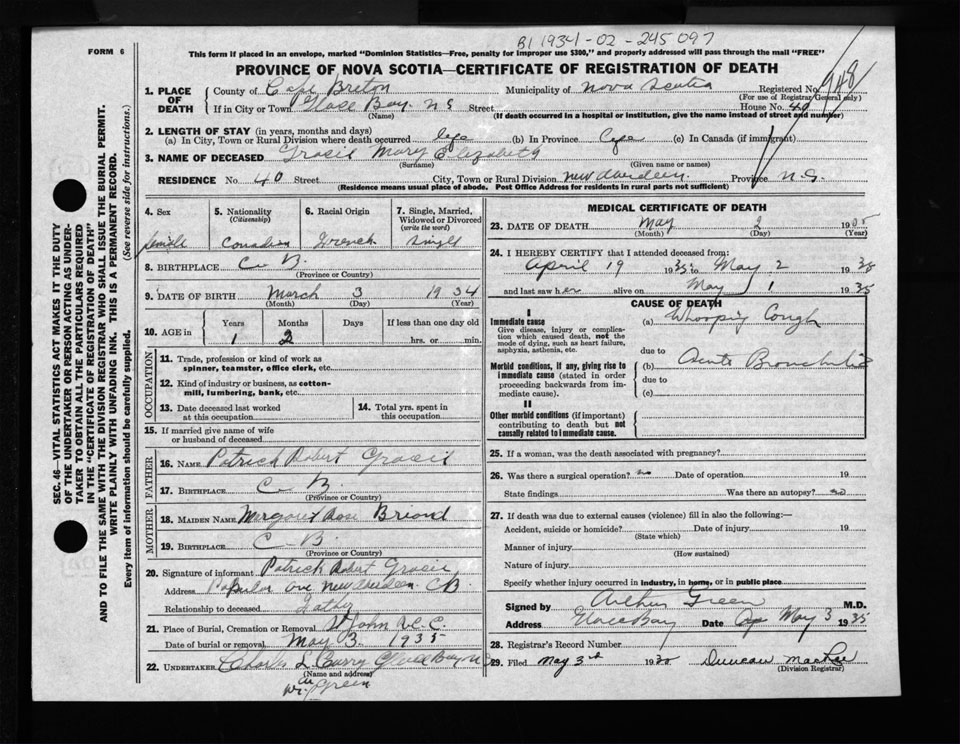 B1 1934-02-245097
FORM 6
This form if placed in an envelope, marked "Dominion Statistics—Free, penalty for improper use $300," and properly addressed will pass through the mail "FREE"
PROVINCE OF NOVA SCOTIA—CERTIFICATE OF REGISTRATION OF DEATH
1. PLACE OF DEATH
County of Cape Breton Municipality of Nova Scotia Registered No. 948
(For use of Registrar General only)
If in City or Town Glace Bay. N S Street House No. 40
(Name) (If death occurred in a hospital or institution, give the name instead of street and number)
2. LENGTH OF STAY (in years, months and days)
(a) In City, Town or Rural Division where death occurred life (b) In Province (c) In Canada (if immigrant)
3. NAME OF DECEASED Mary Elizabeth
(Surname) (Given name or names)
RESIDENCE No. 40 Street City, Town or Rural Division New Aberdeen Province N.S.
(Residence means usual place of abode. Post Office Address for residents in rural parts not sufficient)
4. Sex female
5. Nationality (Citizenship) Canadian
6. Racial Origin French
7. Single, Married, Widowed or Divorced (write the word) Single
8. BIRTHPLACE C. B.
(Province or Country)
9. DATE OF BIRTH March 3 1934
(Month) (Day) (Year)
10. AGE in Years Months Days If less than one day old
1 2 hrs. or min.
OCCUPATION
11. Trade, profession or kind of work as spinner, teamster, office clerk, etc.
12. Kind of industry or business, as cotton-mill, lumbering, bank, etc.
13. Date deceased last worked at this occupation
14. Total yrs. spent in this occupation
15. If married give name of wife or husband of deceased
FATHER
16. NAME Patrick Robert
17. BIRTHPLACE C. B.
(Province or Country)
MOTHER
18. MAIDEN NAME Margaret Rose Briand
19. BIRTHPLACE C. B.
(Province or Country)
20. Signature of informant Patrick Robert
Address Ave New Aberdeen CB
Relationship to deceased Father
21. Place of Burial, Cremation or Removal St John
Date of burial or removal May 3. 1935
22. UNDERTAKER Charles L Curry Glace Bay NS
(Name and address)
Dr. Green
MEDICAL CERTIFICATE OF DEATH
23. DATE OF DEATH May 2 1935
(Month) (Day) (Year)
24. I HEREBY CERTIFY that I attended deceased from:
April 19 1935 to May 2 1935
and last saw her alive on May 1 1935
CAUSE OF DEATH
I
Immediate cause
Give disease, injury or complication which caused death, not the mode of dying, such as heart failure, asphyxia, asthenia, etc.
(a) Whooping Cough
due to
Morbid conditions, if any, giving rise to immediate cause (stated in order proceeding backwards from immediate cause).
(b) Acute Bronchitis
due to
(c)
II
Other morbid conditions (if important) contributing to death but not causally related to immediate cause.
25. If a woman, was the death associated with pregnancy?
26. Was there a surgical operation? no Date of operation 19
State findings Was there an autopsy? no
27. If death was due to external causes (violence) fill in also the following:—
Accident, suicide or homicide? Date of injury 19
(State which)
Manner of injury
(How sustained)
Nature of injury
Specify whether injury occurred in industry, in home, or in public place
Signed by Arthur Green M.D.
Address Glace Bay Date May 3 1935
28. Registrar's Record Number
29. Filed May 3rd 1935 Duncan MacRae
(Division Registrar)
SEC. 46—VITAL STATISTICS ACT MAKES IT THE DUTY
OF THE UNDERTAKER OR PERSON ACTING AS UNDER-
TAKER TO OBTAIN ALL THE PARTICULARS REQUIRED
IN THE "CERTIFICATE OF REGISTRATION OF DEATH"
AND TO FILE THE SAME WITH THE DIVISION REGISTRAR WHO SHALL ISSUE THE BURIAL PERMIT.
WRITE PLAINLY WITH UNFADING INK. THIS IS A PERMANENT RECORD.
Every item of information should be carefully supplied. (See reverse side for instructions.)